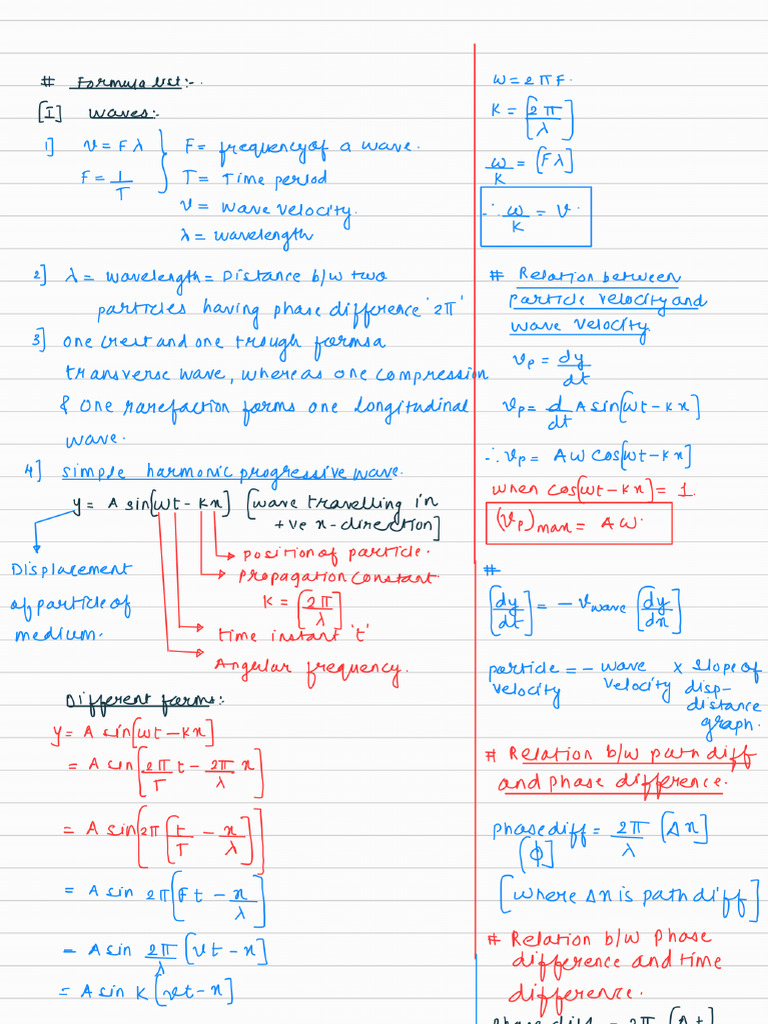 # Formula list:-
[I] Waves:-
1] v = F λ
F = 1/T
F = frequency of a wave.
T = Time period
v = wave velocity.
λ = wavelength
2] λ = wavelength = Distance b/w two
particles having phase difference '2π'
3] one crest and one trough forms a
transverse wave, whereas one compression
& one rarefaction forms one longitudinal
wave.
4] simple harmonic progressive wave.
y = A sin[ωt - kx] [wave travelling in
+ve x-direction]
Displacement
of particle of
medium.
position of particle.
propagation constant.
K = [2π/λ]
time instant 't'
Angular frequency.
Different forms:-
y = A sin[ωt - kx]
= A sin[2π/T t - 2π/λ x]
= A sin[2π[t/T - x/λ]]
= A sin 2π[Ft - x/λ]
= A sin 2π/λ [vt - x]
= A sin K [vt - x]
ω = 2πF.
K = [2π/λ]
ω/K = [Fλ]
∴ ω/K = v.
# Relation between
particle velocity and
wave velocity.
vp = dy/dt
vp = d/dt A sin[ωt - kx]
∴ vp = Aω cos[ωt - kx]
when cos[ωt - kx] = 1.
(vp)max = Aω.
#
[dy/dt] = - vwave [dy/dx]
particle = - wave x slope of
velocity velocity disp-
distance
graph.
# Relation b/w path diff
and phase difference.
phase diff = 2π/λ [Δx]
[ϕ]
[where Δx is path diff]
# Relation b/w Phase
difference and time
difference.
phase diff = 2π [Δt]